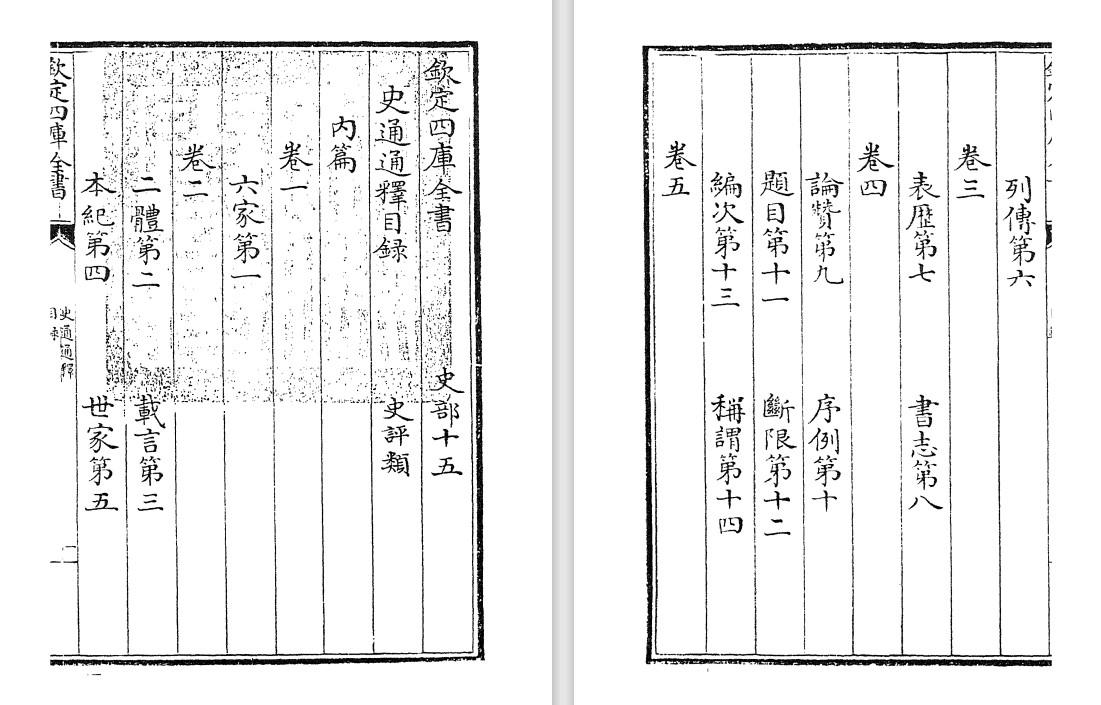 欽定四庫全書　史部十五
史通通釋目録　史評類
内篇
卷一
六家第一
卷二
二體第二　載言第三
本紀第四　世家第五
欽定四庫全書
史通通釋
列傳第六
卷三
表歴第七　書志第八
卷四
論贊第九　序例第十
題目第十一　斷限第十二
編次第十三　稱謂第十四
卷五